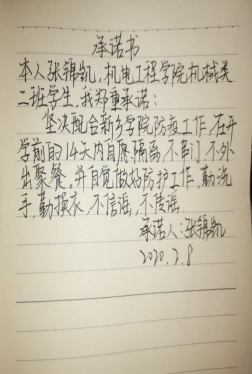 承诺书
本人张锦凯，机电工程学院机械类
二班学生，我郑重承诺：
坚决配合新乡学院防疫工作，在开
学前的14天内自愿隔离，不串门，不外
出聚餐，并自觉做好防护工作，勤洗
手，勤换衣，不信谣，不传谣.
承诺人：张锦凯
2020.2.8